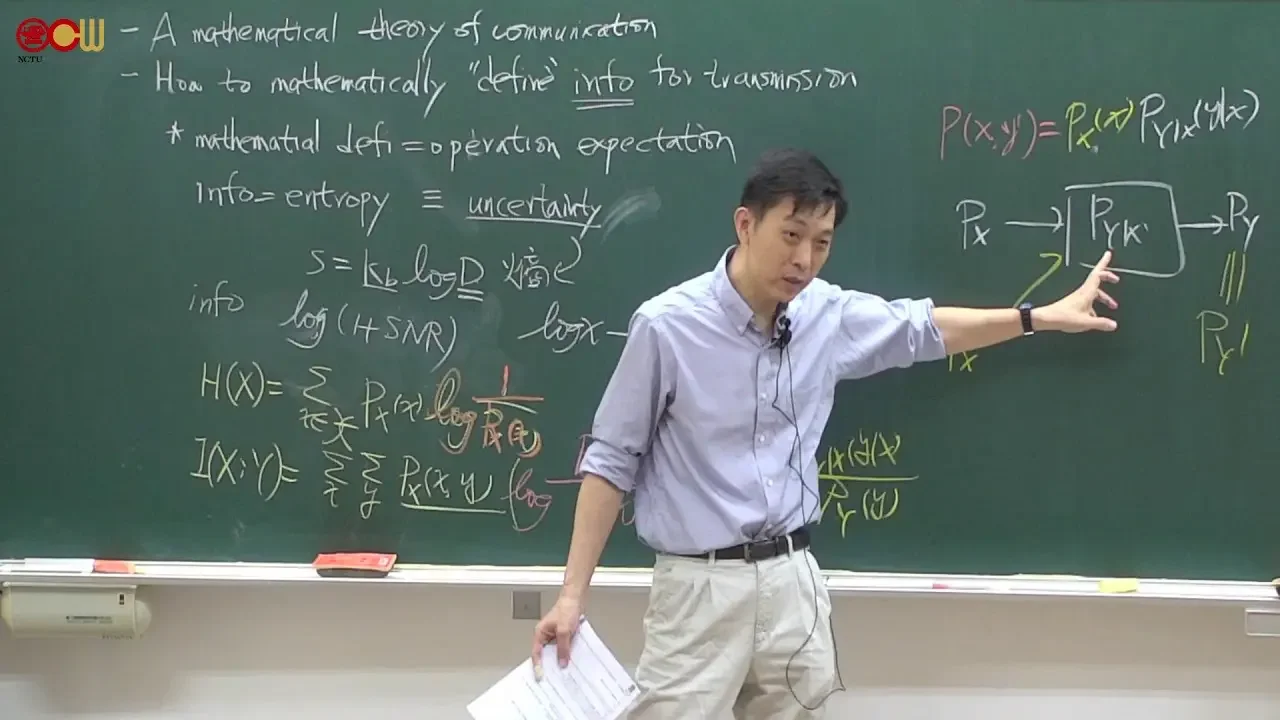 NCTU OCW
- A mathematical theory of communication
- How to mathematically "define" info for transmission
* mathematial defi = operation expectation
info = entropy ≡ uncertainty
S = k_b log D 熵
info log(1+SNR) log x –
H(X) = Σ_{x∈𝒳} P_X(x) log 1/P_X(x)
I(X;Y) = Σ_x Σ_y P_X(x,y) (log
Y|X(y|x) / P_Y(y)
P(x,y) = P_X(x) P_{Y|X}(y|x)
P_X → P_{Y|X} → P_Y
P_X
P_Y